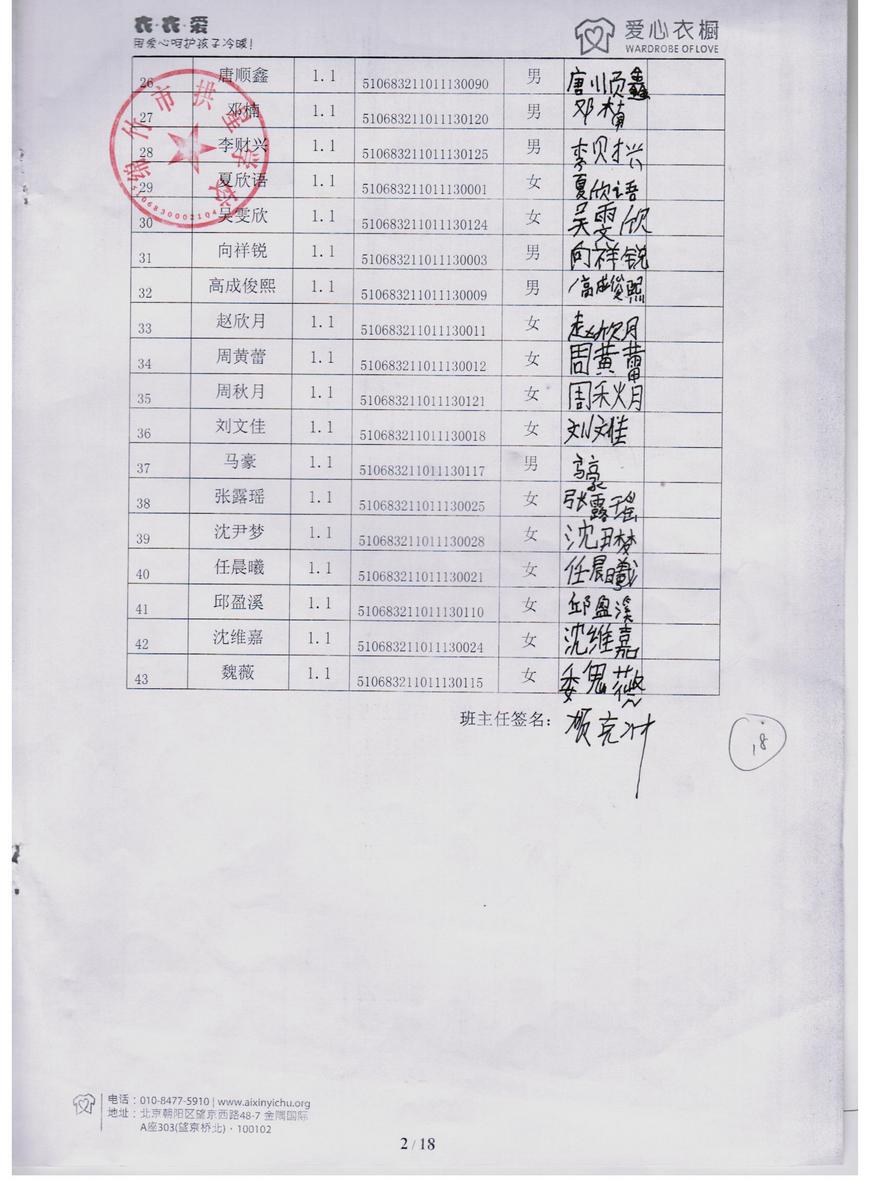 衣·衣·爱
用爱心呵护孩子冷暖!
爱心衣橱
WARDROBE OF LOVE
26 唐顺鑫 1.1 510683211011130090 男 唐顺鑫
27 邓楠 1.1 510683211011130120 男 邓楠
28 李财兴 1.1 510683211011130125 男 李财兴
29 夏欣语 1.1 510683211011130001 女 夏欣语
30 吴雯欣 1.1 510683211011130124 女 吴雯欣
31 向祥锐 1.1 510683211011130003 男 向祥锐
32 高成俊熙 1.1 510683211011130009 男 高成俊熙
33 赵欣月 1.1 510683211011130011 女 赵欣月
34 周黄蕾 1.1 510683211011130012 女 周黄蕾
35 周秋月 1.1 510683211011130121 女 周秋月
36 刘文佳 1.1 510683211011130018 女 刘文佳
37 马豪 1.1 510683211011130117 男 马豪
38 张露瑶 1.1 510683211011130025 女 张露瑶
39 沈尹梦 1.1 510683211011130028 女 沈尹梦
40 任晨曦 1.1 510683211011130021 女 任晨曦
41 邱盈溪 1.1 510683211011130110 女 邱盈溪
42 沈维嘉 1.1 510683211011130024 女 沈维嘉
43 魏薇 1.1 510683211011130115 女 魏薇
绵竹市拱星学校
班主任签名:
18
电话：010-8477-5910 | www.aixinyichu.org
地址：北京朝阳区望京西路48-7 金隅国际
A座303(望京桥北)·100102
2 / 18